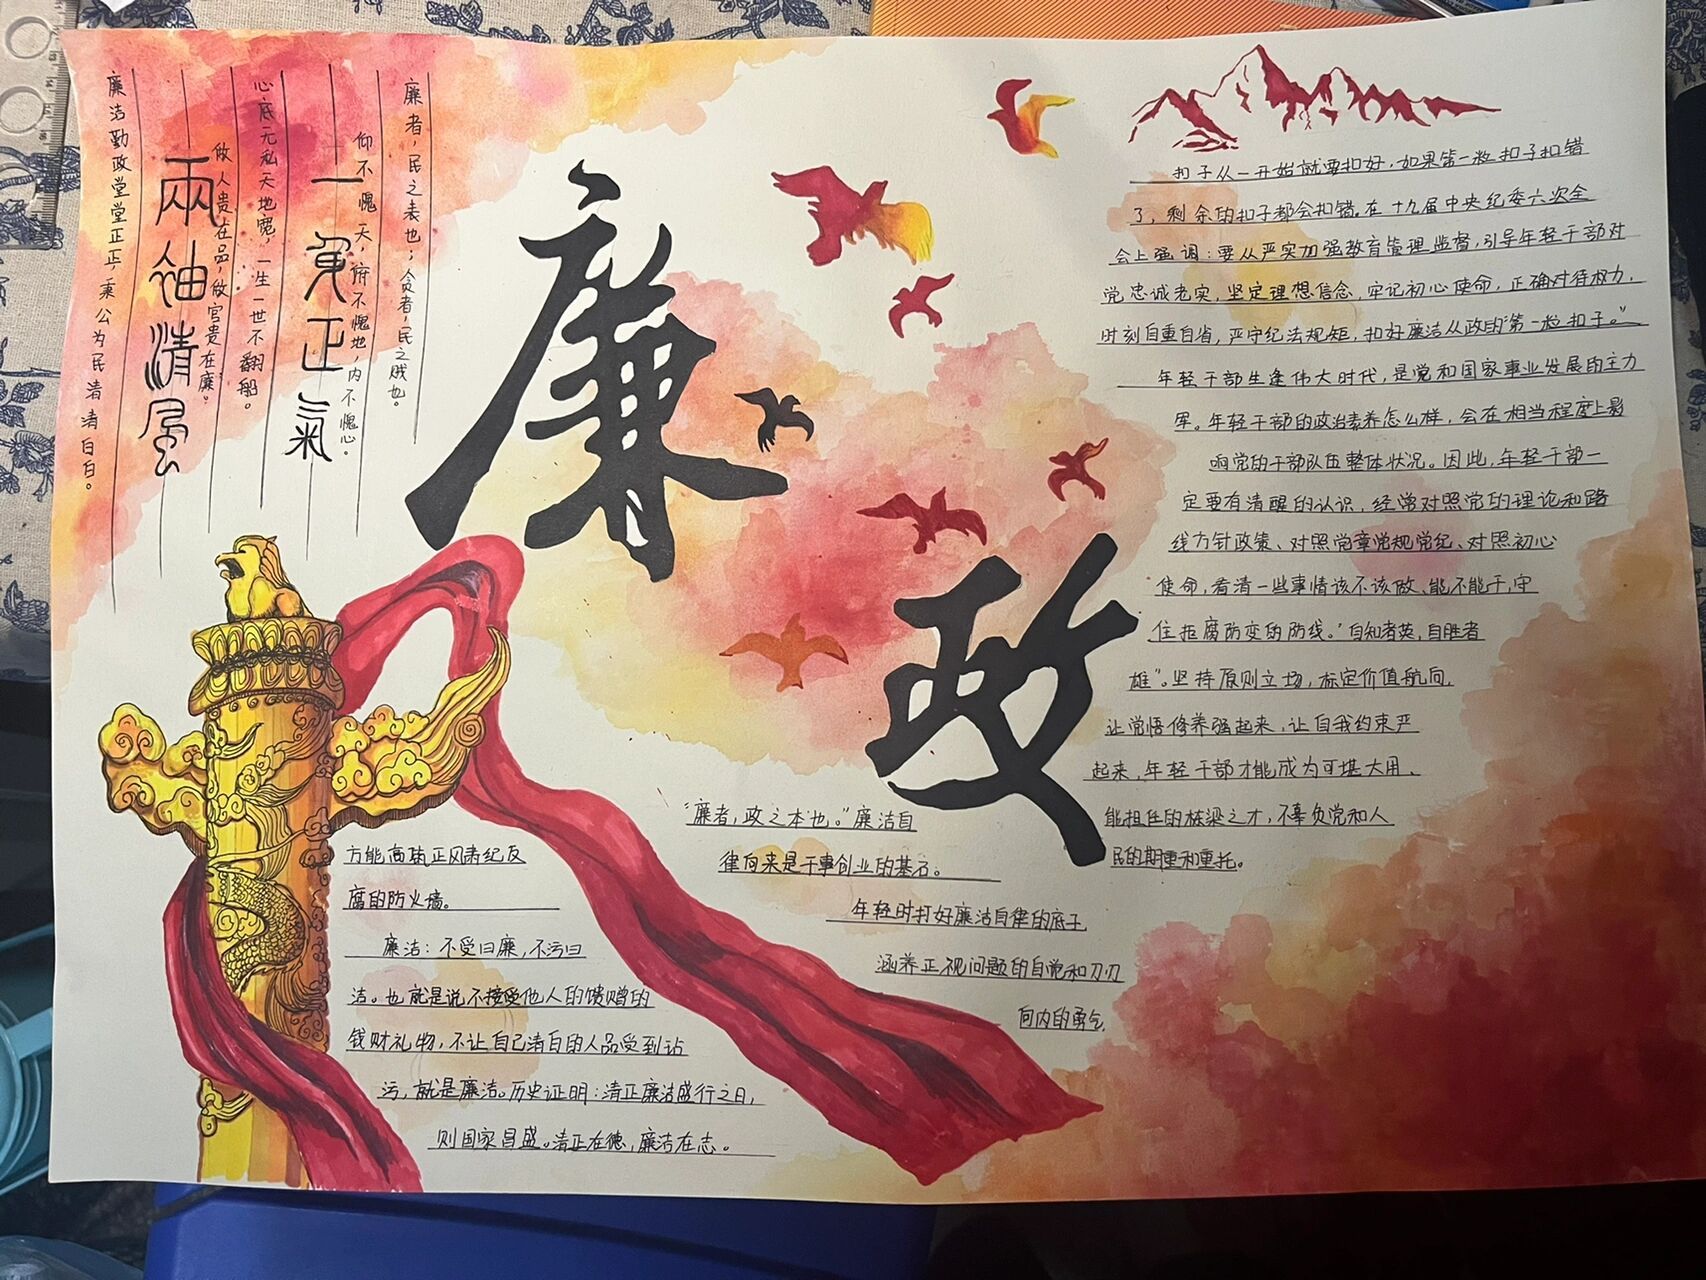 廉者，民之表也；贪者，民之贼也。
仰不愧天，俯不愧地，内不愧心。
一身正氣
心底无私天地宽，一生一世不翻船。
做人贵在品，做官贵在廉。
兩袖清風
廉洁勤政堂堂正正，秉公为民清清白白。
廉
政
扣子从一开始就要扣好，如果第一粒扣子扣错
了，剩余的扣子都会扣错。在十九届中央纪委六次全
会上强调：要从严实加强教育管理监督，引导年轻干部对
党忠诚老实，坚定理想信念，牢记初心使命，正确对待权力，
时刻自重自省，严守纪法规矩，扣好廉洁从政的“第一粒扣子。”
年轻干部生逢伟大时代，是党和国家事业发展的主力
军。年轻干部的政治素养怎么样，会在相当程度上影
响党的干部队伍整体状况。因此，年轻干部一
定要有清醒的认识，经常对照党的理论和路
线方针政策、对照党章党规党纪、对照初心
使命，看清一些事情该不该做、能不能干，守
住拒腐防变的防线。“自知者英，自胜者
雄”。坚持原则立场，标定价值航向，
让党悟修养强起来，让自我约束严
起来，年轻干部才能成为可堪大用、
能担任的栋梁之才，不辜负党和人
民的期重和重托。
“廉者，政之本也。”廉洁自
律向来是干事创业的基石。
年轻时打好廉洁自律的底子
涵养正视问题的自觉和刀刃
向内的勇气，
方能高筑正风肃纪反
腐的防火墙。
廉洁：不受曰廉，不污曰
洁。也就是说不接受他人的馈赠的
钱财礼物，不让自己清白的人品受到玷
污，就是廉洁。历史证明：清正廉洁盛行之日，
则国家昌盛。清正在德，廉洁在志。